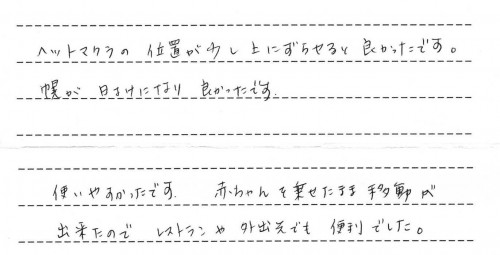 ヘットマクラの 位置が少し上にずらせると 良かったです。
幌が 日さけになり 良かったです.
使いやすかったです. 赤ちゃんを乗せたまま 移動が
出来たので レストランや 外出先でも 便利でした。